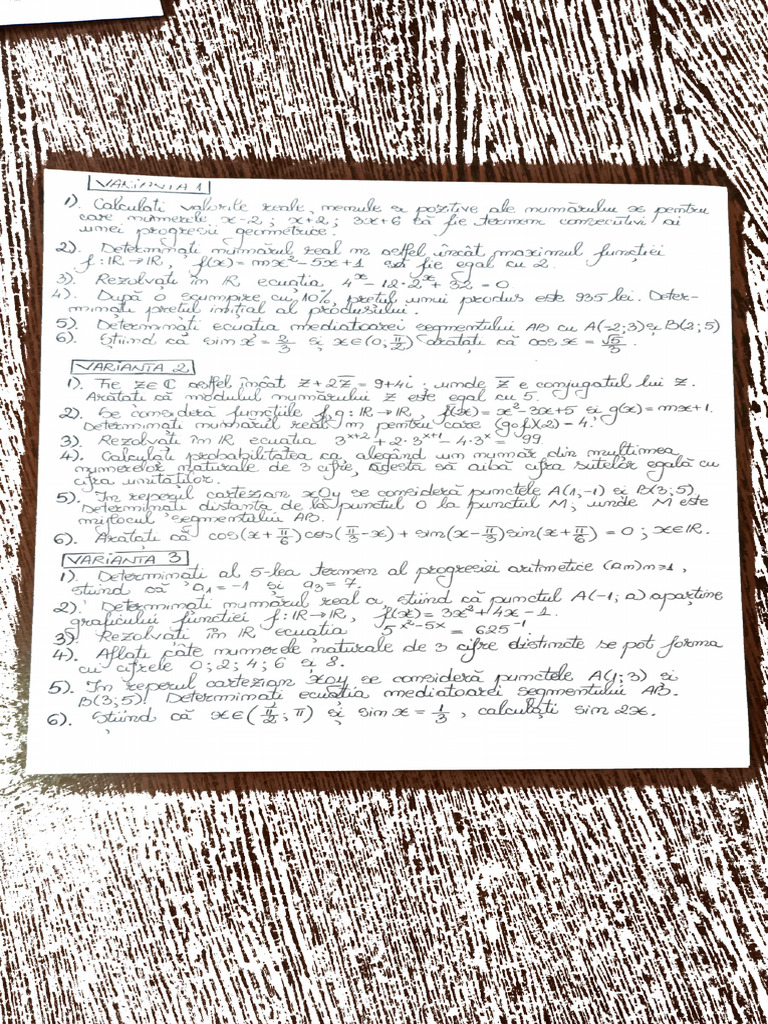 VARIANTA 1
1). Calculati valorile reale, menule si pozitive ale numărului x pentru
care numerele x-2 ; x+2 ; 3x+6 să fie termeni consecutivi ai
unei progresii geometrice.
2). Determinați numărul real m astfel încât maximul funcției
f: IR → IR, f(x) = mx² - 5x + 1 să fie egal cu 2.
3). Rezolvați în IR ecuația 4ˣ - 12·2ˣ + 32 = 0
4). După o scumpire cu 10%, prețul unui produs este 935 lei. Deter-
minați prețul inițial al produsului.
5). Determinați ecuația mediatoarei segmentului AB cu A(-2;3) și B(2;5)
6). Știind că sin x = 2/3 și x∈(0; π/2) arătați că cos x = √5/3.
VARIANTA 2
1). Fie z∈ℂ astfel încât z + 2z̅ = 9+4i ; unde z̅ e conjugatul lui z.
Arătați că modulul numărului z este egal cu 5.
2). Se consideră funcțiile f,g: IR→IR, f(x) = x²-3x+5 și g(x) = mx+1.
Determinați numărul real m pentru care (gof)(2) = 4.
3). Rezolvați în IR ecuația 3ˣ⁺² + 2·3ˣ⁺¹ - 4·3ˣ = 99
4). Calculați probabilitatea ca, alegând un număr din mulțimea
numerelor naturale de 3 cifre, acesta să aibă cifra sutelor egală cu
cifra unităților.
5). În reperul cartezian xOy se consideră punctele A(1,-1) și B(3;5)
Determinați distanța de la punctul O la punctul M, unde M este
mijlocul segmentului AB.
6). Arătați că cos(x+π/6)cos(π/3-x) + sin(x-π/3)sin(x+π/6) = 0 ; x∈IR.
VARIANTA 3
1). Determinați al 5-lea termen al progresiei aritmetice (an)n≥1,
știind că a₁=-1 și a₃=7.
2). Determinați numărul real a știind că punctul A(-1; a) aparține
graficului funcției f: IR→IR, f(x) = 3x²+4x-1.
3). Rezolvați în IR ecuația 5ˣ²⁻⁵ˣ = 625⁻¹
4). Aflați câte numerele naturale de 3 cifre distincte se pot forma
cu cifrele 0; 2; 4; 6 și 8.
5). În reperul cartezian xOy se consideră punctele A(1;3) și
B(3;5). Determinați ecuația mediatoarei segmentului AB.
6). Știind că x∈(π/2; π) și sin x = 1/3, calculați sin 2x.